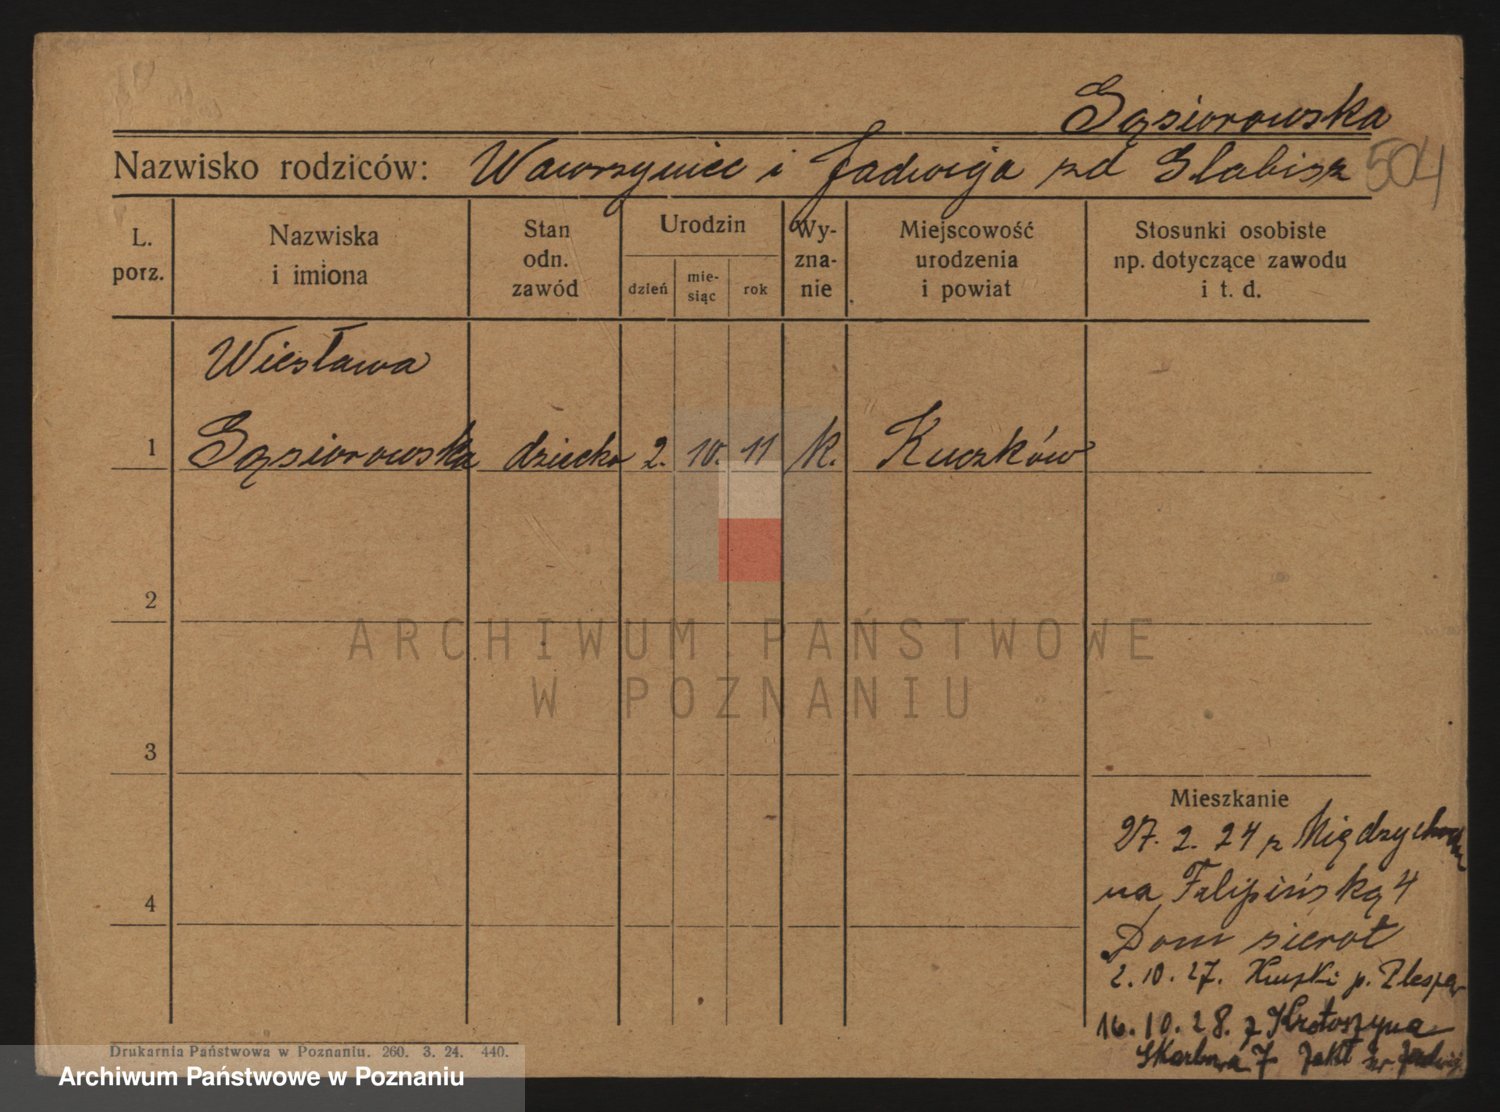 Gąsiorowska
Nazwisko rodziców: Wawrzyniec i Jadwiga zd Slabisz 504
L. porz.
Nazwiska i imiona
Stan odn. zawód
Urodzin
dzień
mie- siąc
rok
Wy- zna- nie
Miejscowość urodzenia i powiat
Stosunki osobiste np. dotyczące zawodu i t. d.
Wiesława
1 Gąsiorowska dziecko 2. 10. 11 k. Kuczków
2
3
4
Mieszkanie
27. 2. 24 z Międzychodu
na Filipińską 4
Dom sierot
2. 10. 27. p. Pleszew
16. 10. 28. z Krotoszyna
Skarbowa 7 Zakł św. Jadwigi
Drukarnia Państwowa w Poznaniu. 260. 3. 24. 440.
ARCHIWUM PAŃSTWOWE
W POZNANIU
Archiwum Państwowe w Poznaniu